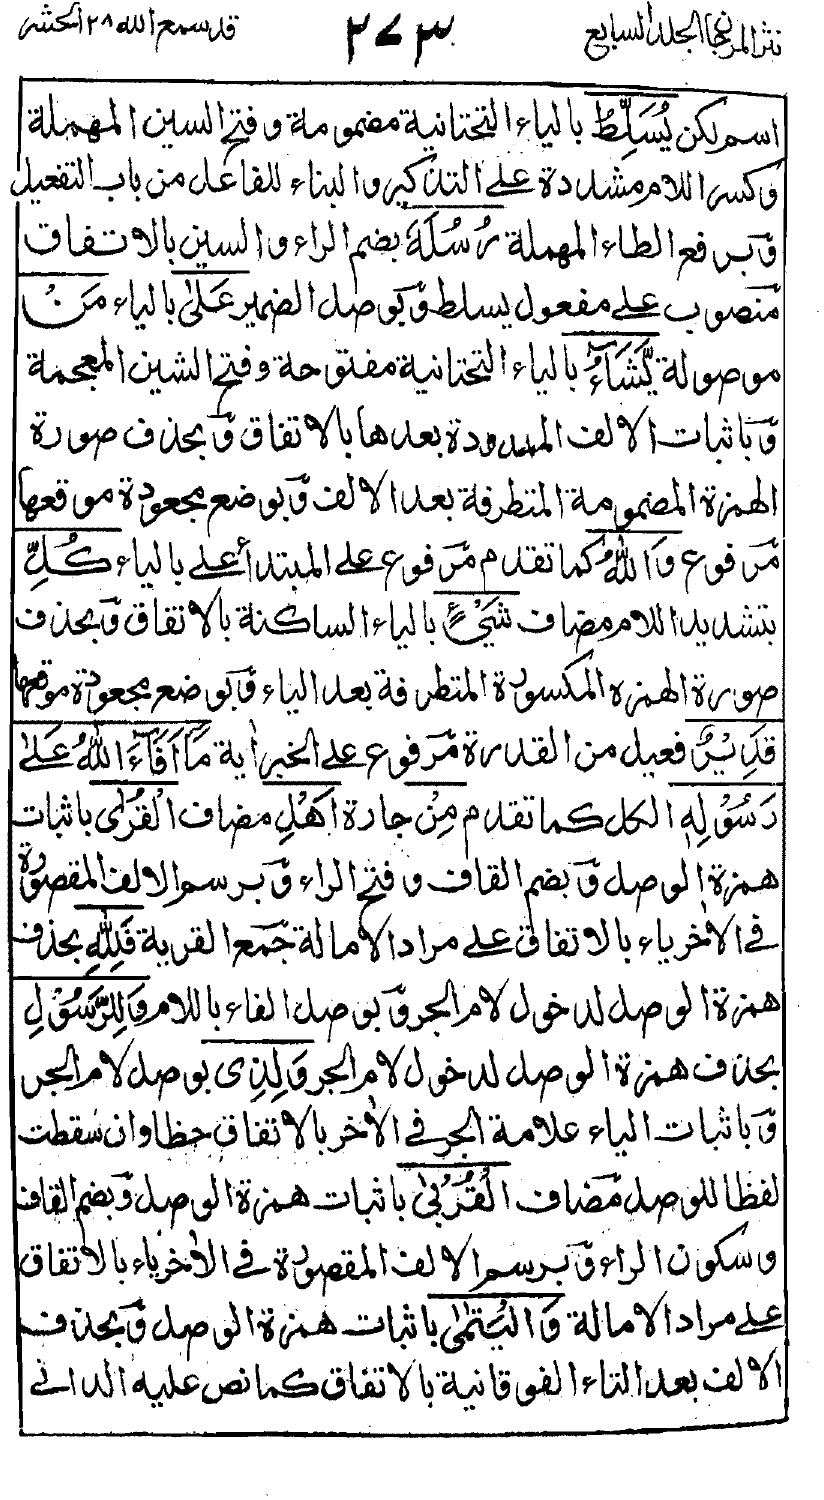 نثر المرجان الجلد السابع ٢٧٣ قد سمع الله ٢٨ الحشر
اسم لكن يُسَلِّطُ بالياء التحتانية مضمومة وفتح السين المهملة
وكسر اللام مشددة على التذكير والبناء للفاعل من باب التفعيل
وّبرفع الطاء المهملة رُسُلَهٗ بضم الراء والسين بالاتفاق
منصوب على مفعول يسلط وّبوصل الضمير عَلٰى بالياء مَنْ
موصولة يَّشَآءُ بالياء التحتانية مفتوحة وفتح الشين المعجمة
وّباثبات الالف الممدودة بعدها بالاتفاق وّبحذف صورة
الهمزة المضمومة المتطرفة بعد الالف وّبوضع مجعودة موقعها
مّرفوع وَاللّٰهُ كما تقدم مّرفوع على المبتدأ عَلٰى بالياء كُلِّ
بتشديد اللام مضاف شَيْءٍ بالياء الساكنة بالاتفاق وّبحذف
صورة الهمزه المكسورة المتطرفة بعد الياء وّبوضع مجعودة موقعها
قَدِيْرٌ فعيل من القدرة مّرفوع على الخبر اٰية مَآ اَفَآءَ اللّٰهُ عَلٰى
رَسُوْلِهٖ الكل كما تقدم مِنْ جارة اَهْلِ مضاف الْقُرٰى باثبات
همزة الوصل وّبضم القاف وفتح الراء وّبرسم الالف المقصورة
فى الاٰخر ياء بالاتفاق على مراد الامالة جّمع القرية فَلِلّٰهِ بحذف
همزة الوصل لدخول لام الجر وّبوصل الفاء باللام وَلِلرَّسُوْلِ
بحذف همزة الوصل لدخول لام الجر وَلِذِى بوصل لام الجر
وّباثبات الياء علامة الجر فى الاٰخر بالاتفاق خطا وان سقطت
لفظا للوصل مّضاف الْقُرْبٰى باثبات همزة الوصل وّبضم القاف
وسكون الراء وّبرسم الالف المقصورة فى الاٰخر ياء بالاتفاق
على مراد الامالة وَالْيَتٰمٰى باثبات همزة الوصل وّبحذف
الالف بعد التاء الفوقانية بالاتفاق كما نص عليه الدانى